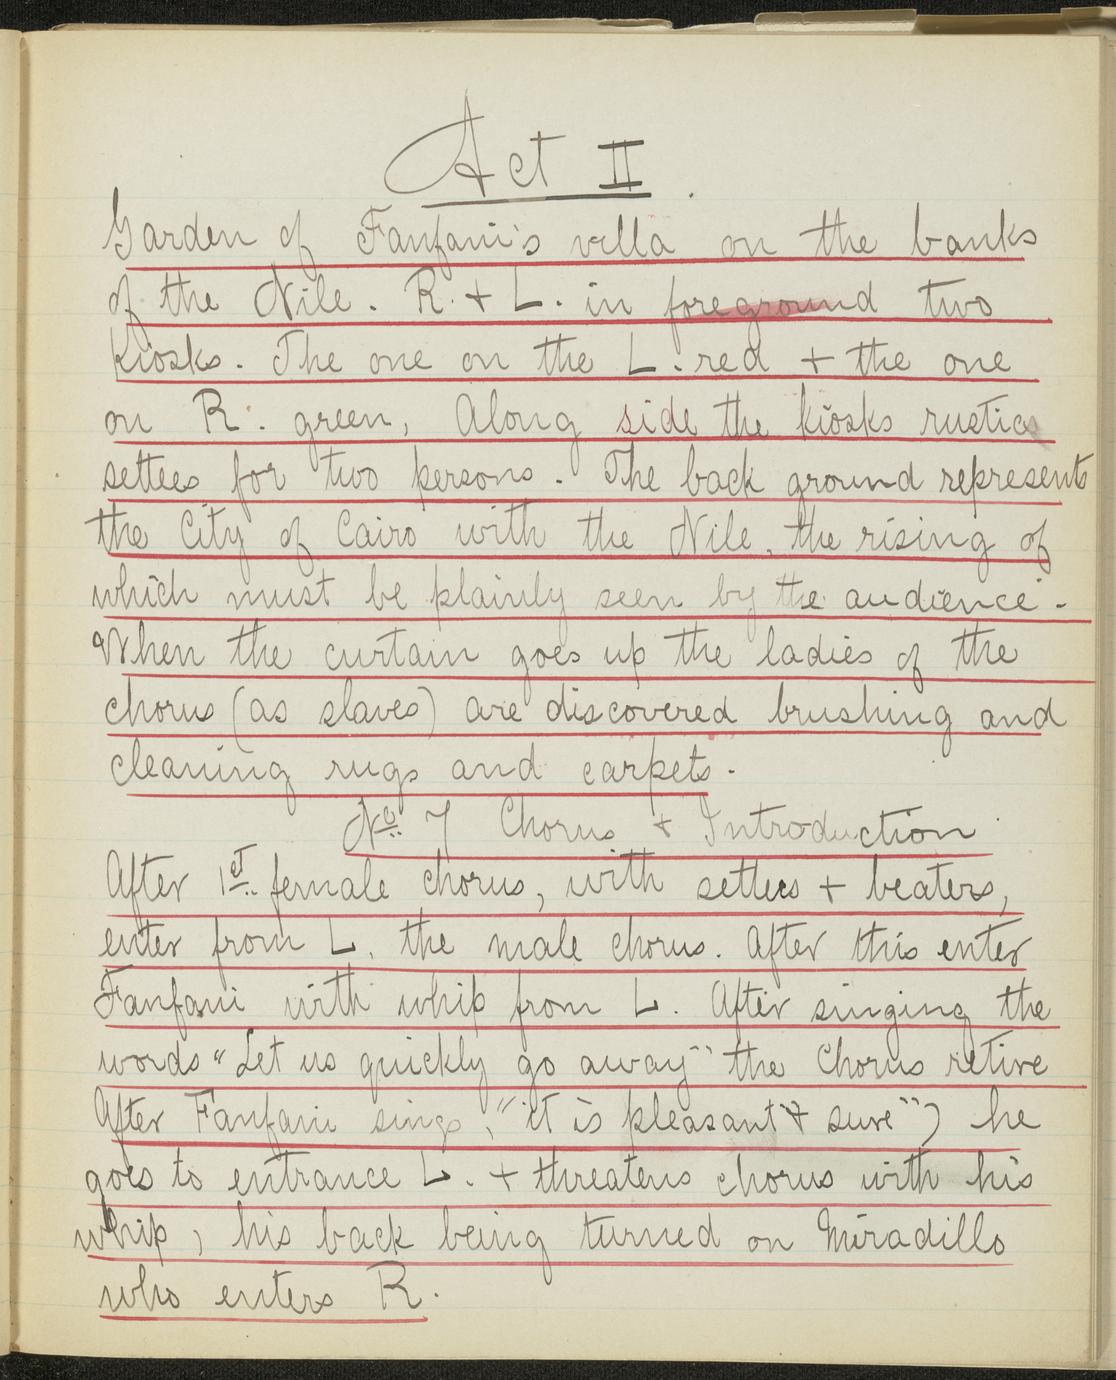 Act II.
Garden of Fanfani's villa on the banks
of the Nile. R. + L. in foreground two
kiosks. The one on the L. red + the one
on R. green, Along side the kiosks rustic
settees for two persons. The back ground represents
the City of Cairo with the Nile, the rising of
which must be plainly seen by the audience.
When the curtain goes up the ladies of the
chorus (as slaves) are discovered brushing and
cleaning rugs and carpets.
No. 7 Chorus + Introduction
After 1st. female chorus, with settees + beaters,
enter from L. the male chorus. After this enter
Fanfani with whip from L. After singing the
words "Let us quickly go away" the Chorus retire
After Fanfani sings, "it is pleasant + sure") he
goes to entrance L. + threatens chorus with his
whip, his back being turned on Miradillo
who enters R.